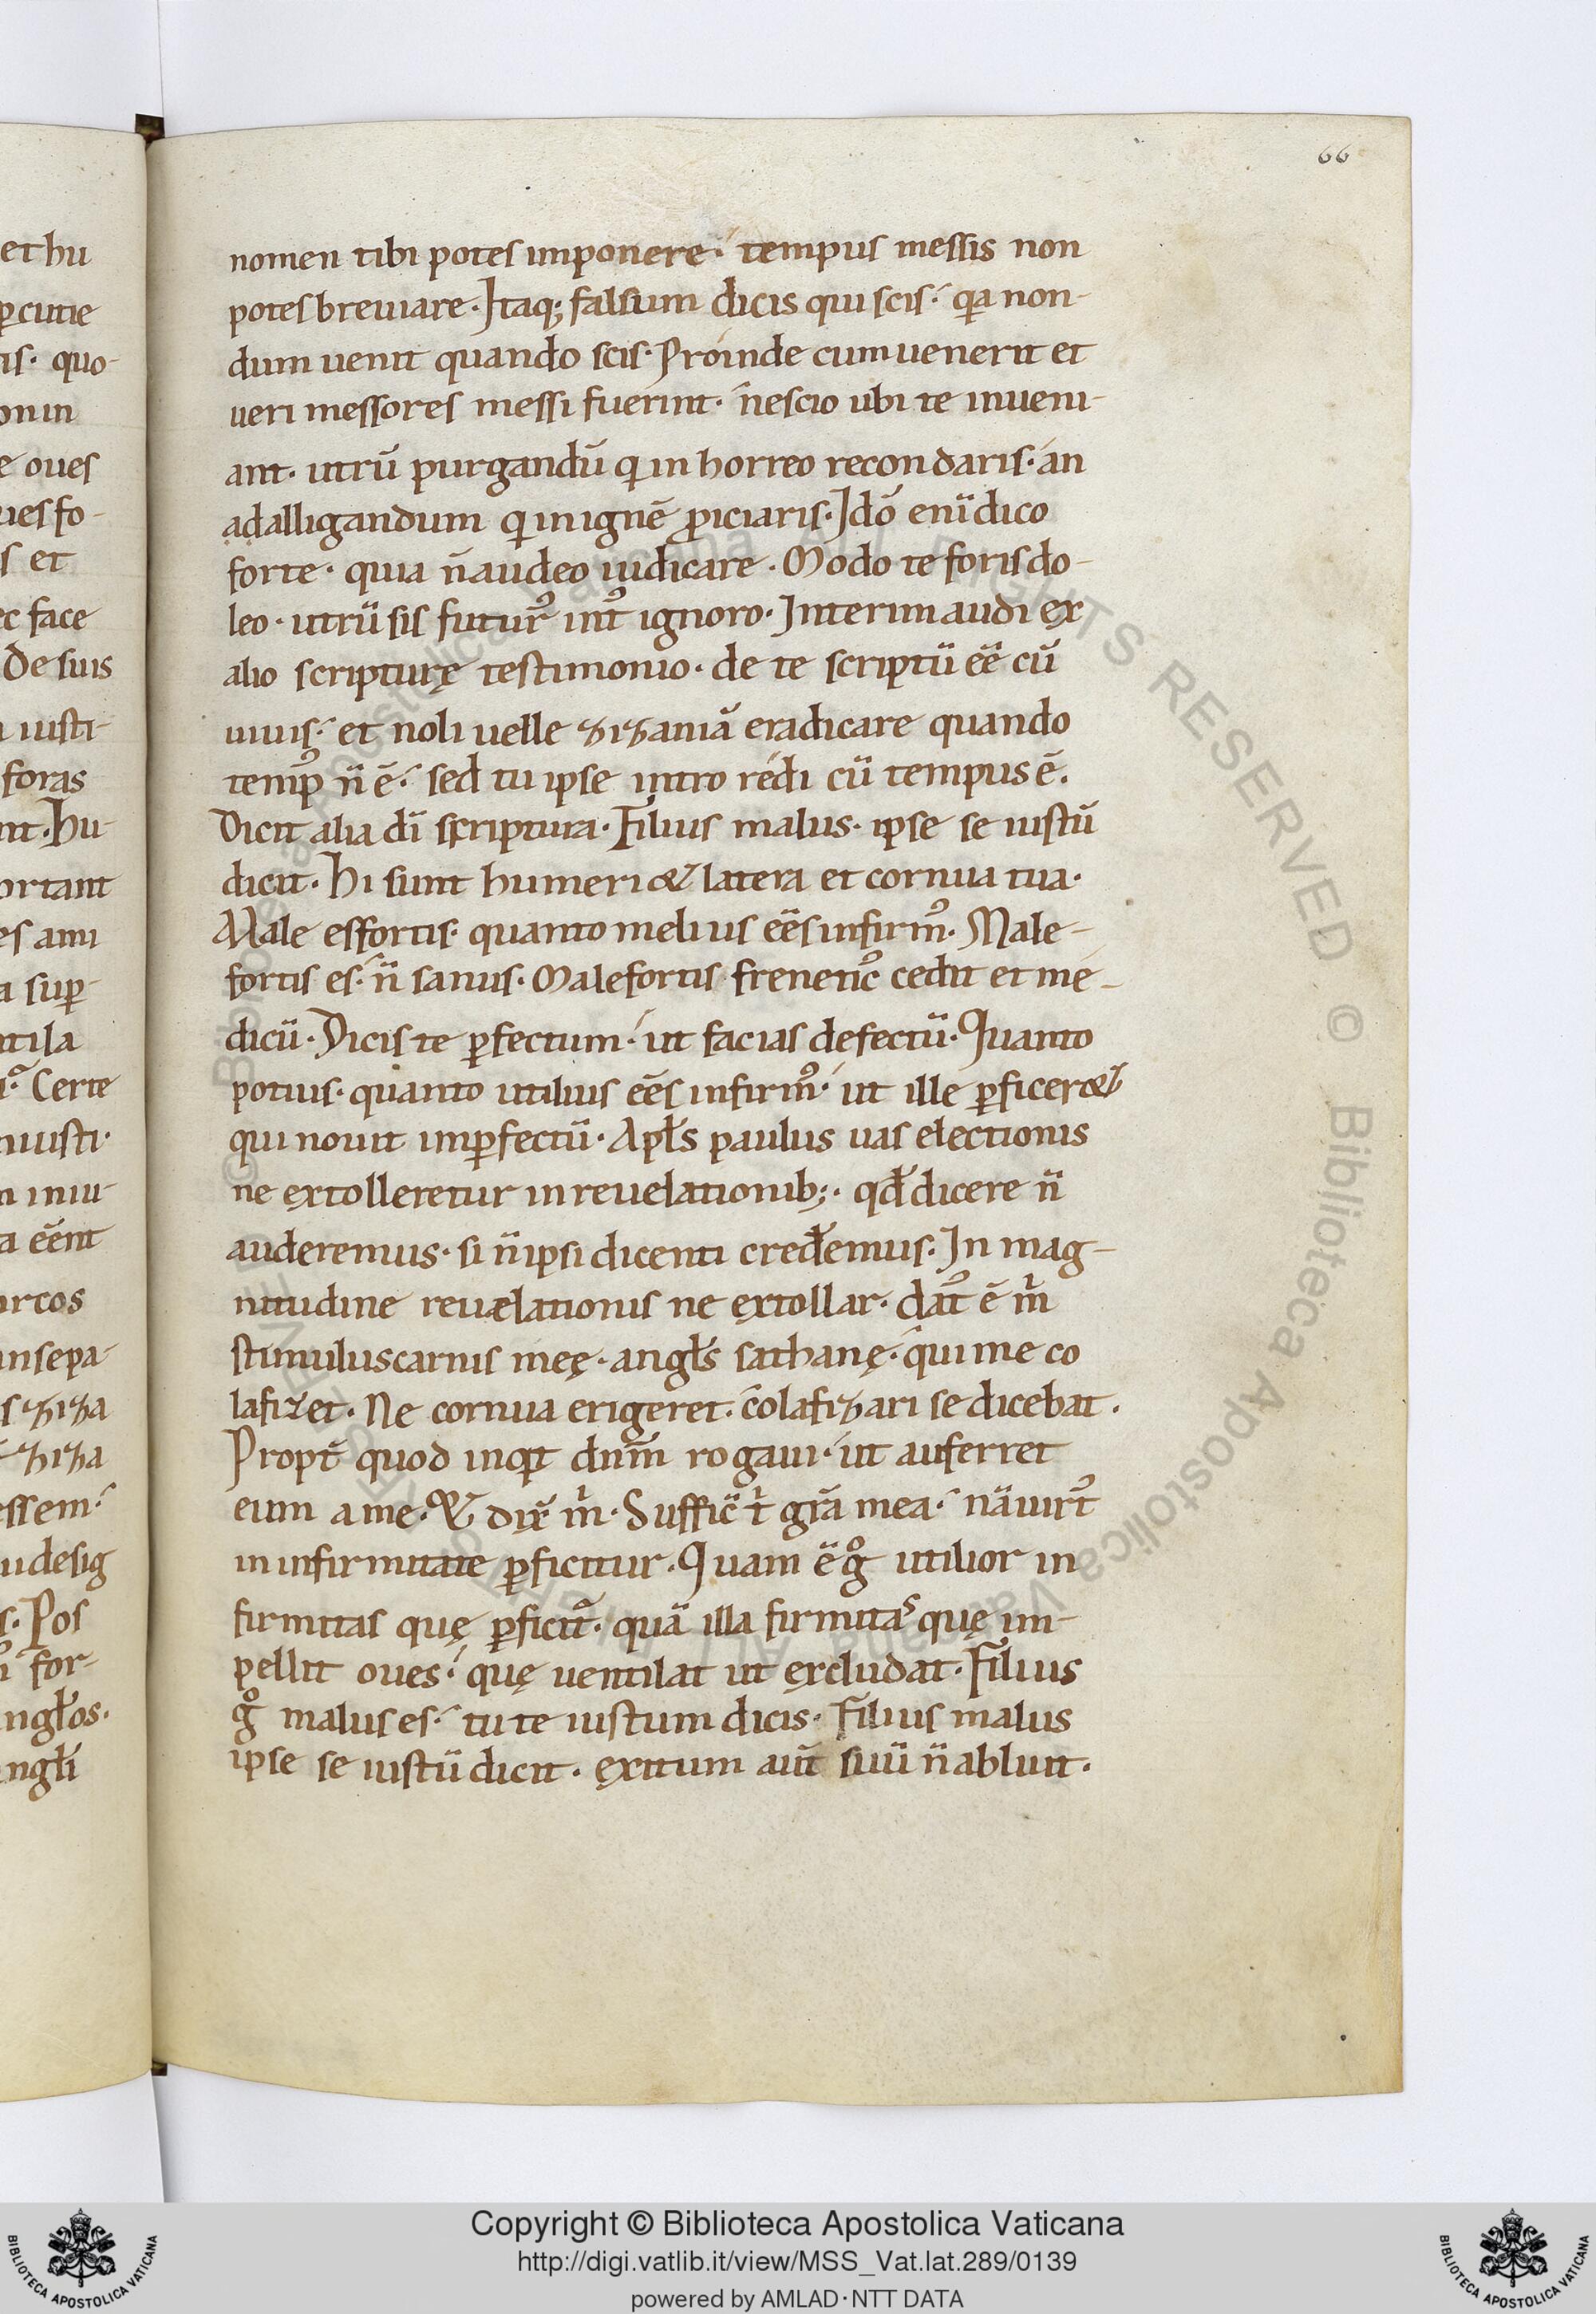 66
nomen tibi potes imponere. tempus messis non
potes breuiare. Itaq; falsum dicis qui scis. qa non-
dum uenit quando scis. Proinde cum uenerit et
ueri messores messi fuerint. nescio ubi te inueni-
ant. utrū purgandū qi in horreo recondaris. an
ad alligandum qi in ignē ꝓiciaris. Idō enī dico
forte. quia n̄ audeo iudicare. Modo te foris do-
leo. utrū sis futurꝰ intꝰ ignoro. Interim audi ex
alio scripturę testimonio. de te scriptū eē cū
uiuis. et noli uelle zizaniā eradicare quando
tempꝰ n̄ ē. sed tu ipse intro redi cū tempus ē.
Dicit alia dī scriptura. Filius malus. ipse se iustū
dicit. Hi sunt humeri & latera et cornua tua.
Male es fortis. quanto melius eēs infirmꝰ. Male-
fortis es. n̄ sanus. Male fortis freneticꝰ cedit et me-
dicū. Dicis te ꝑfectum. ut facias defectū. Quanto
potius. quanto utilius eēs infirmꝰ. ut ille ꝑficer&
qui nouit imꝑfectū. Apłs paulus uas electionis
ne extolleretur in reuelationib;. qđ dicere n̄
auderemus. si n̄ ipsi dicenti credemus. In mag-
nitudine reuelationis ne extollar. datꝰ ē m̄
stimulus carnis meę. angłs sathanę. qui me co
lafizet. Ne cornua erigeret. colafizari se dicebat.
Propt̄ quod inqt dnm̄ rogaui. ut auferret
eum a me. & dix̄ m̄. Suffic̄ t̄ gr̄a mea. nā uirtꝰ
in infirmitate ꝑficitur. Quam ē gͦ utilior in
firmitas quę ꝑficit᷑. quā illa firmitas quę im-
pellit oues. quę uentilat ut excludat. Filius
gͦ malus es. tu te iustum dicis. Filius malus
ipse se iustū dicit. exitum aut̄ suū n̄ abluit.
et hu
ꝑcutie
quo-
oues
et
face
De suis
iusti-
foras
Hu-
ortant
Certe
ziza
ziza
Pos
for-
© Biblioteca Apostolica Vaticana ALL RIGHTS RESERVED
Copyright © Biblioteca Apostolica Vaticana
http://digi.vatlib.it/view/MSS_Vat.lat.289/0139
powered by AMLAD·NTT DATA
BIBLIOTECA APOSTOLICA VATICANA
BIBLIOTECA APOSTOLICA VATICANA